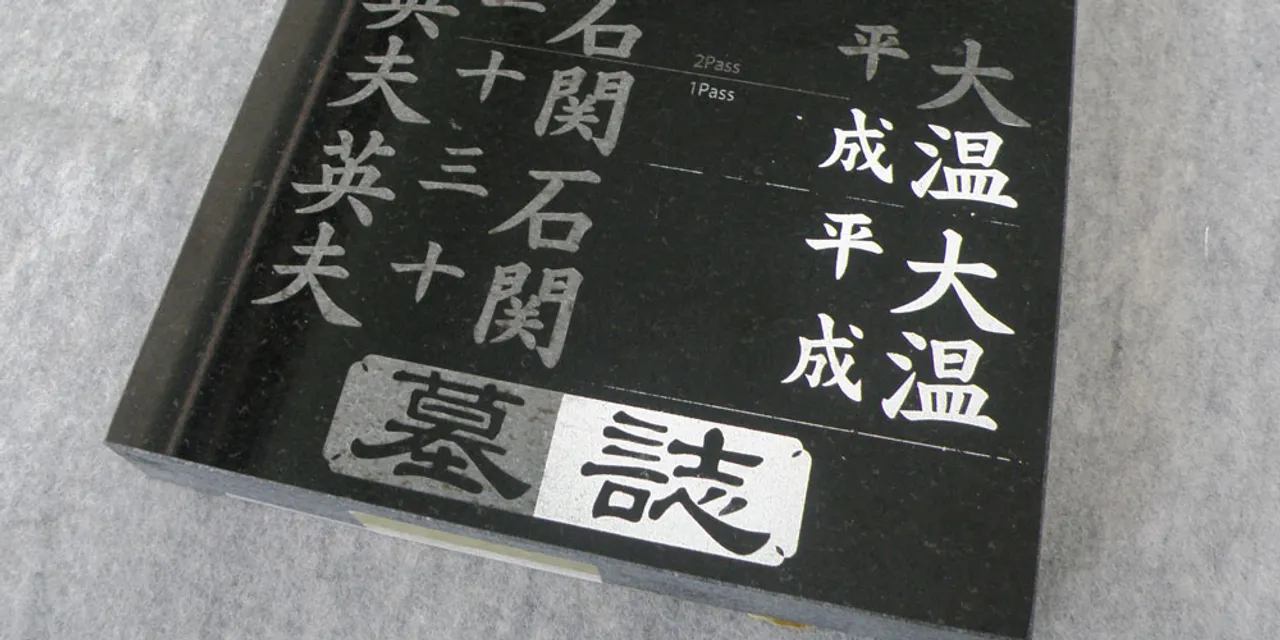 大温大温
平成平成
2Pass
1Pass
石関石関
十三十
英夫英夫
墓誌